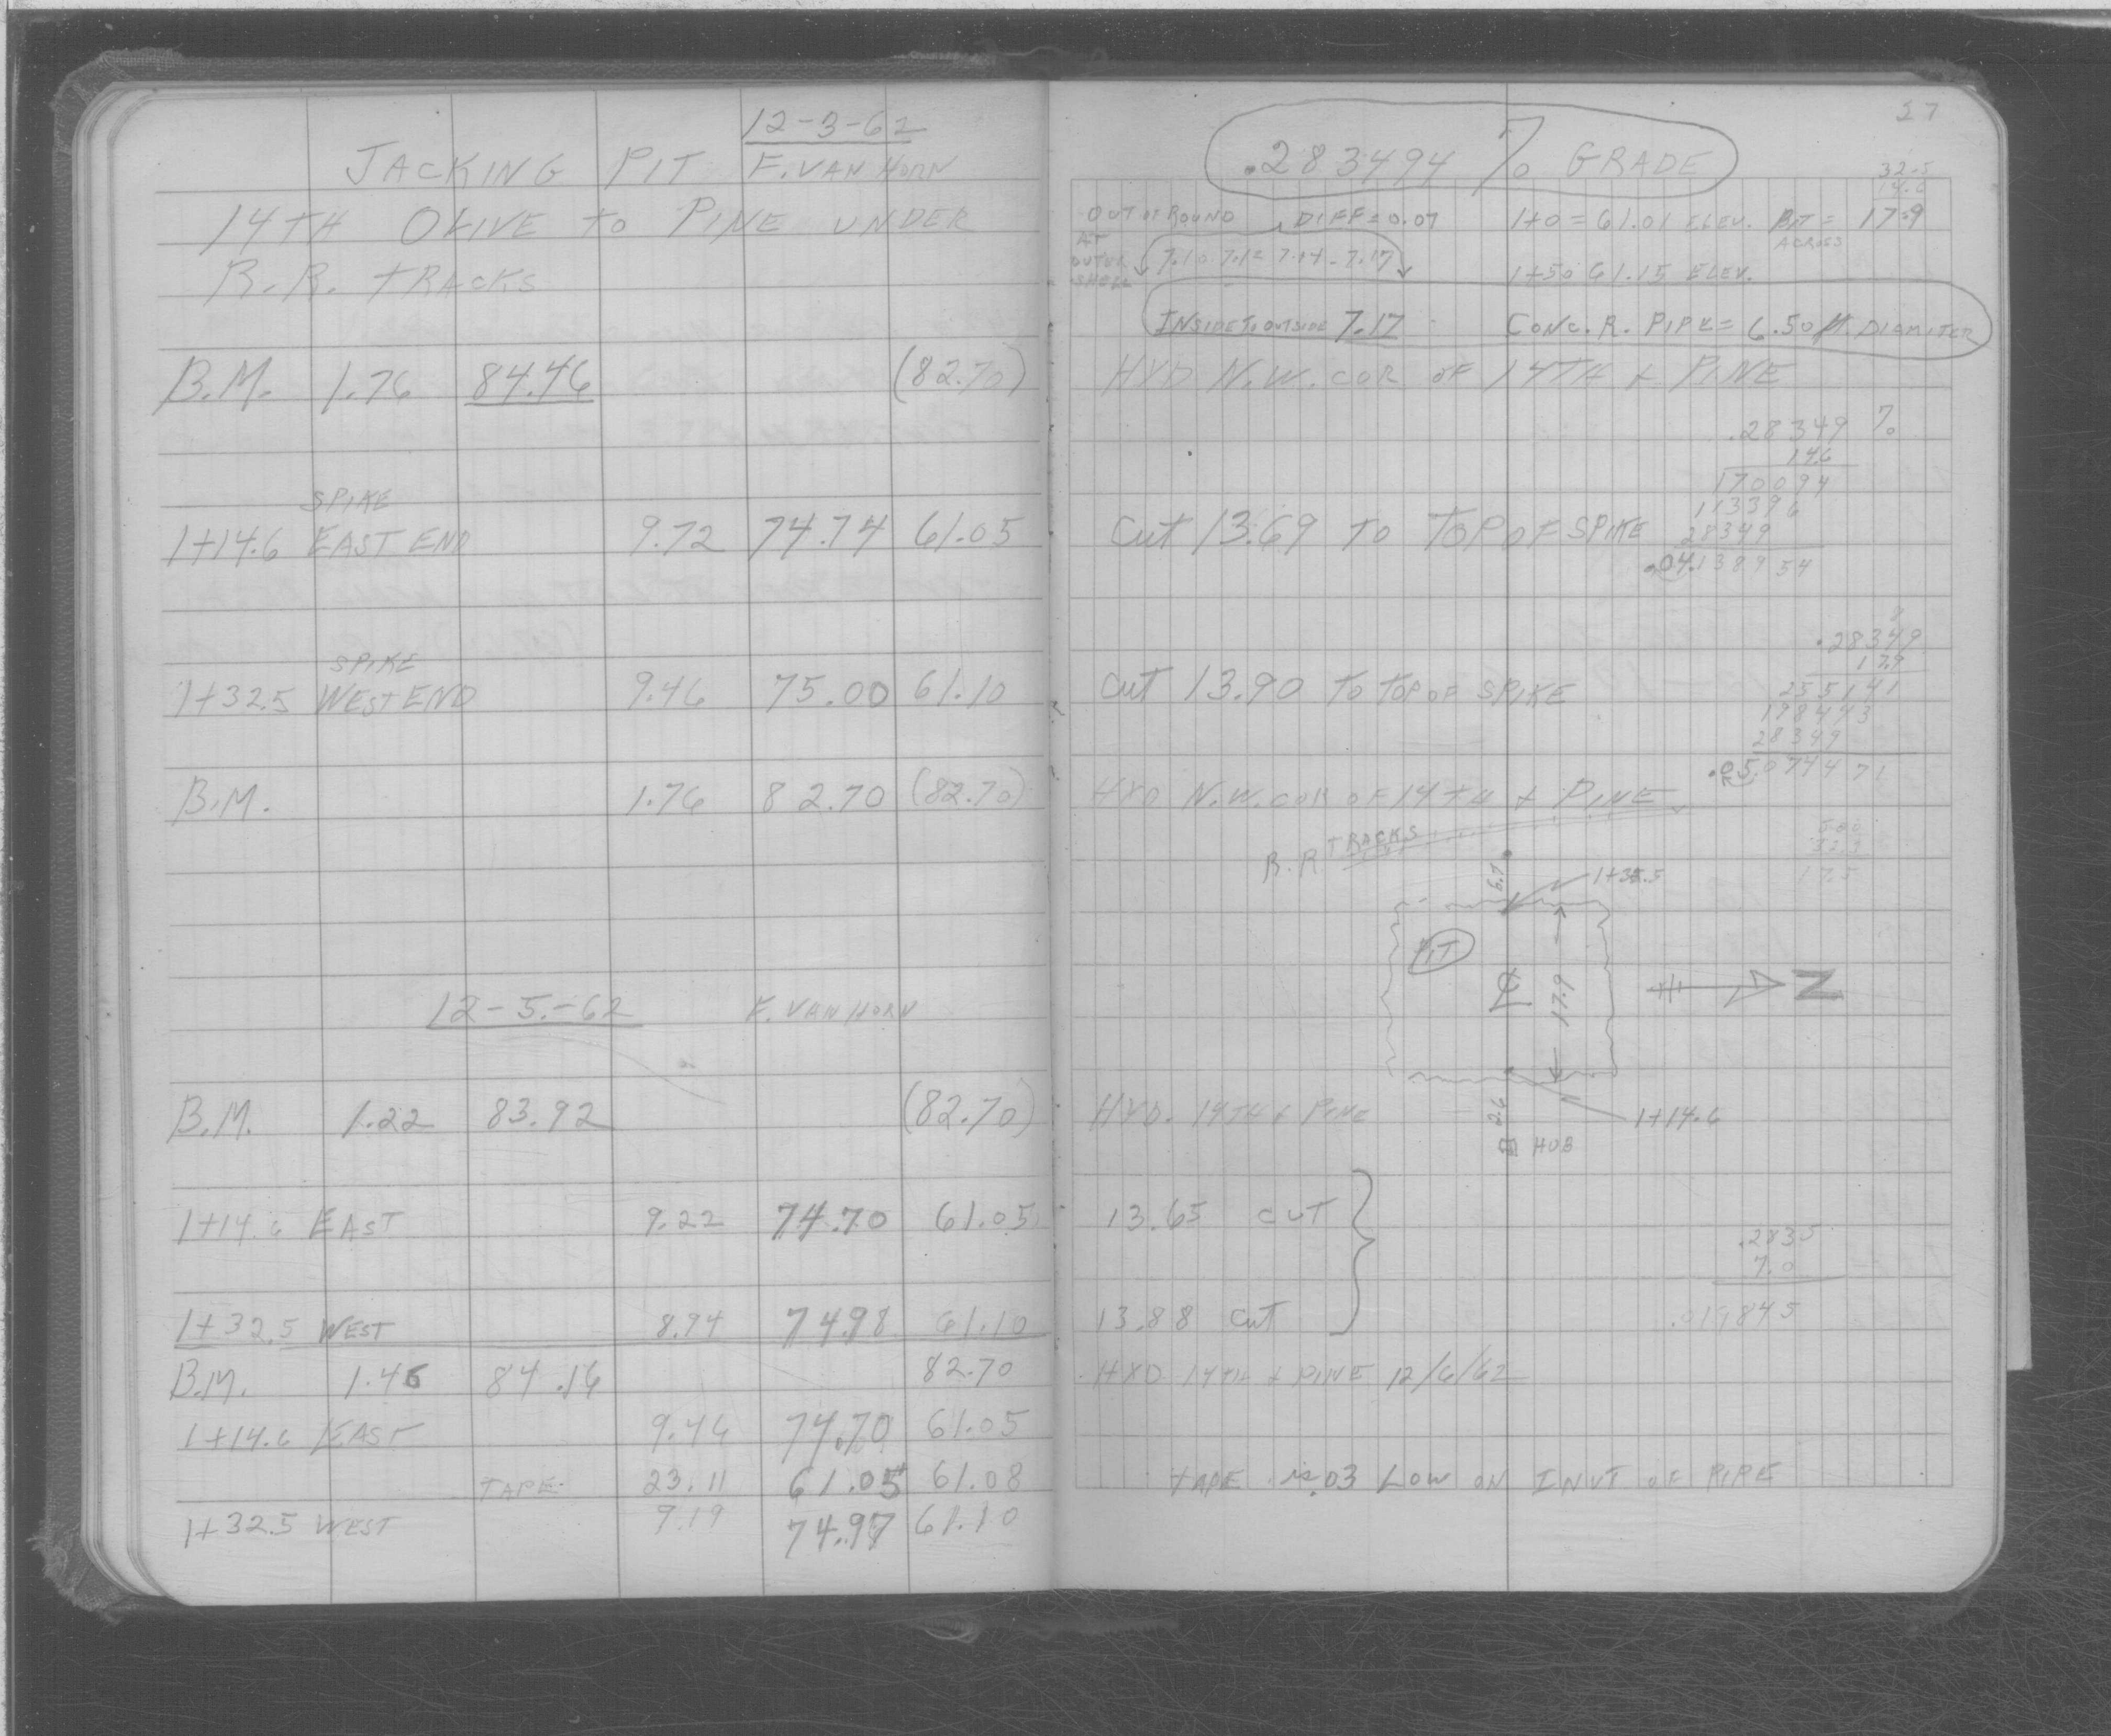 12-3-62
JACKING PIT F. VAN HORN
14TH OLIVE TO PINE UNDER
R.R. TRACKS
B.M. 1.76 84.46 (82.70)
SPIKE
1+14.6 EAST END 9.72 74.74 61.05
SPIKE
1+32.5 WEST END 9.46 75.00 61.10
B.M. 1.76 82.70 (82.70)
12-5-62 F. VAN HORN
B.M. 1.22 83.92 (82.70)
1+14.6 EAST 9.22 74.70 61.05
1+32.5 WEST 8.94 74.98 61.10
B.M. 1.46 84.16 82.70
1+14.6 EAST 9.46 74.70 61.05
TAPE 23.11 61.05 61.08
1+32.5 WEST 9.19 74.97 61.10
.283494 % GRADE
32.5
14.6
OUT OF ROUND DIFF = 0.07 1+0 = 61.01 ELEV. PIT = 17.9
ACROSS
AT
OUTER
SHELL
7.10 7.12 7.14 - 7.17
1+50 61.15 ELEV.
INSIDE TO OUTSIDE 7.17 CONC. R. PIPE = 6.50 ft DIAMITER
HYD N.W. COR OF 14TH + PINE
.28349 %
14.6
170094
113396
28349
.04.138954
CUT 13.69 TO TOP OF SPIKE
.28349
17.9
255141
198443
28349
.05.074471
CUT 13.90 TO TOP OF SPIKE
HYD N.W. COR OF 14TH + PINE
R.R. TRACKS
PIT
17.9
N
HYD. 14TH + PINE
1+14.6
HUB
13.65 CUT
.2835
7.0
.019845
13.88 CUT
HYD 14TH + PINE 12/6/62
TAPE is .03 LOW ON INVT OF PIPE